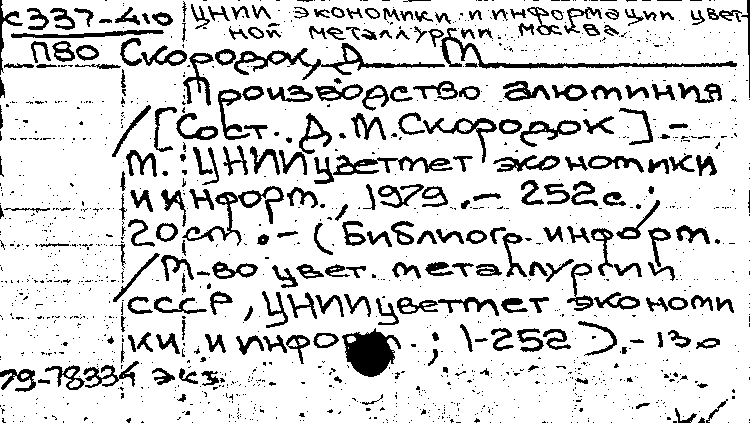 с337-410 ЦНИИ экономики и информации цвет-
ной металлургии. Москва.
П80 Скородок, Д М
Производство алюминия
/[Сост. Д.М.Скородок].-
М. : ЦНИИцветмет экономики
и информ., 1979.- 252с.;
20см .- (Библиогр. информ.
/М-во цвет. металлургии
СССР, ЦНИИцветмет экономи
ки и информ. ; 1-252).- 130
79-78334 экз.